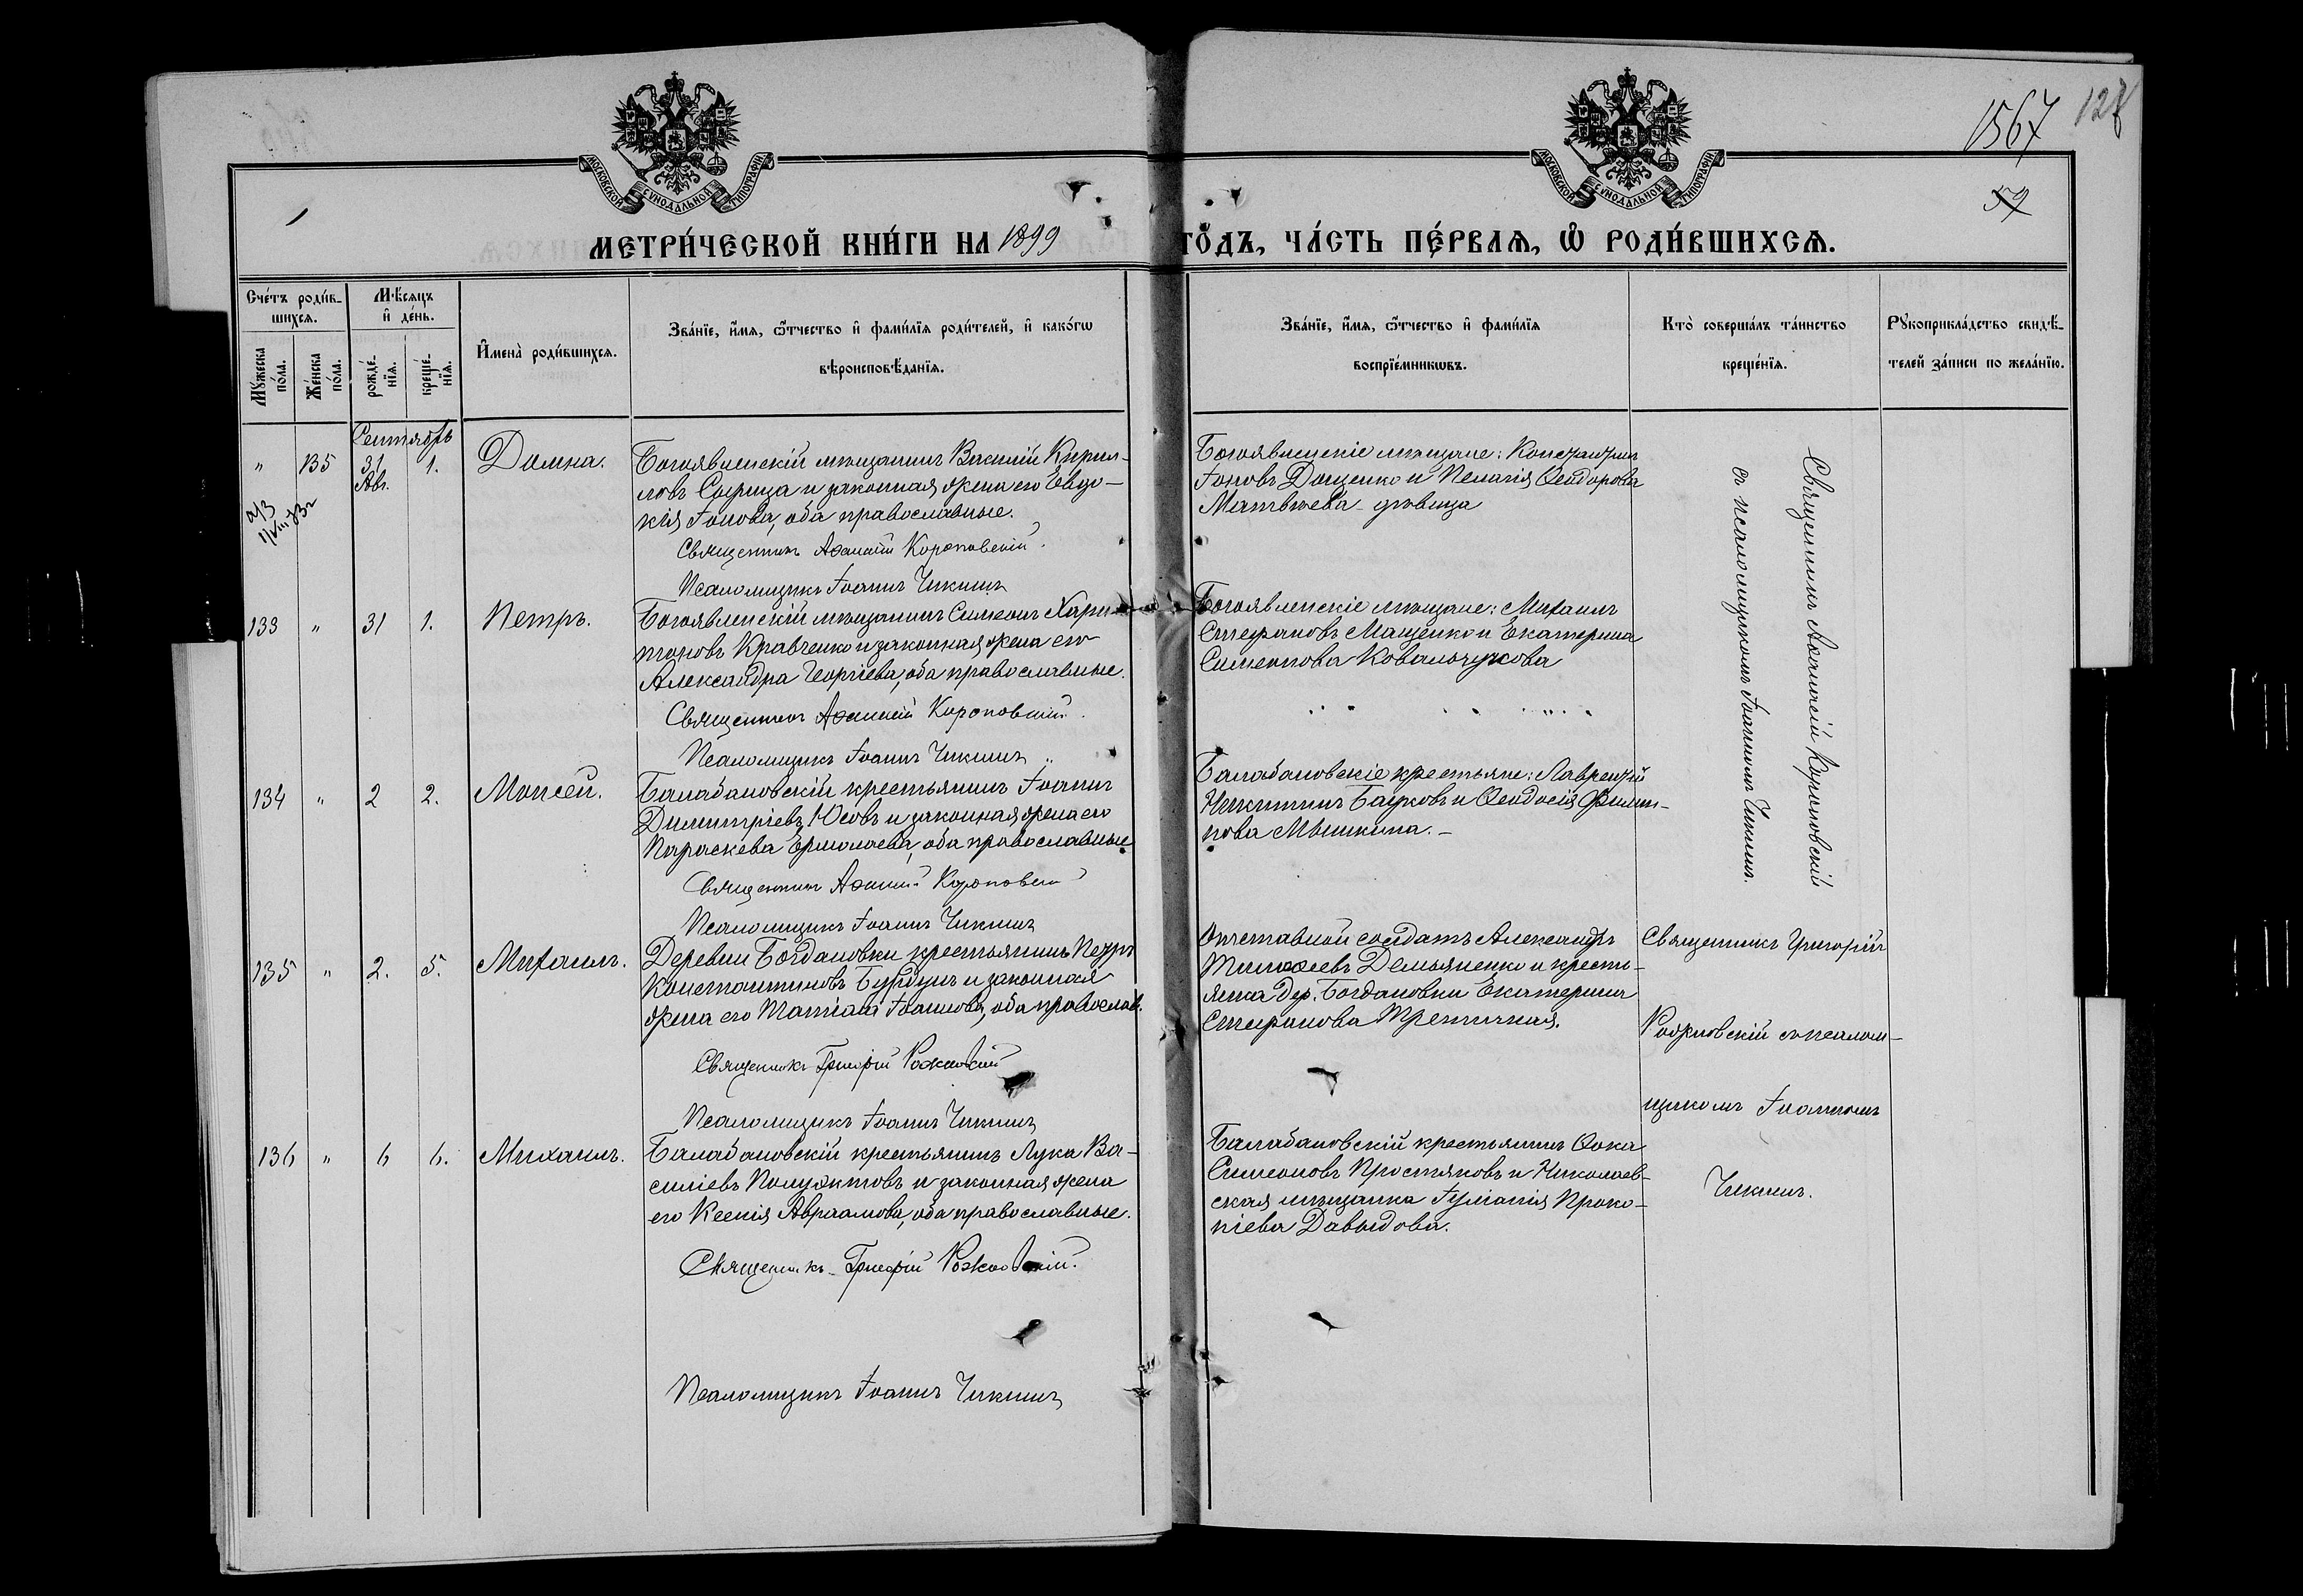 1567
127
59
МОСКОВСКОЙ СѴНОДАЛЬНОЙ ТИПОГРАФІИ
МОСКОВСКОЙ СѴНОДАЛЬНОЙ ТИПОГРАФІИ
МЕТРИ́ЧЕСКОЙ КНИ́ГИ НА 1899 ГО́ДЪ, ЧА́СТЬ ПЕ́РВАѦ, Ѽ РОДИ́ВШИХСѦ.
Сче́тъ роди́в-
шихсѧ.
Мꙋ́жеска
по́ла.
Же́нска
по́ла.
Мѣ́сѧцъ
и҆ де́нь.
рожде́-
нїѧ.
креще́-
нїѧ.
И҆мена̀ роди́вшихсѧ.
Зва́нїе, и҆́мѧ, ѻ҆́тчество и҆ фами́лїѧ роди́телей, и҆ како́гѡ
вѣроисповѣ́данїѧ.
Зва́нїе, и҆́мѧ, ѻ҆́тчество и҆ фами́лїѧ
воспрїе́мникѡвъ.
Кто̀ соверша́лъ та́инство
креще́нїѧ.
Рꙋкоприкла́дство свидѣ́-
телей за́писи по жела́нїю.
Сентябрь
" 135 31 Авг. 1. Домна.
Богоявленскій мѣщанинъ Василій Кирил-
ловъ Сырица и законная жена его Евдо-
кія Іонова, оба православные.
Священникъ Аѳанасій Короповскій
Псаломщикъ Іоаннъ Чикинъ
Богоявленскіе мѣщане: Константинъ
Іоновъ Доценко и Пелагія Ѳеодорова
Матвѣева дѣвица
133 " 31 1. Петръ.
Богоявленскій мѣщанинъ Симеонъ Хари-
тоновъ Кравченко и законная жена его
Александра Георгіева, оба православные.
Священникъ Аѳанасій Короповскій
Псаломщикъ Іоаннъ Чикинъ
Богоявленскіе мѣщане: Михаилъ
Стефановъ Мащенко и Екатерина
Симеонова Ковальчукова
134 " 2 2. Моисей.
Балабановскій крестьянинъ Іоаннъ
Димитріевъ Юсовъ и законная жена его
Параскева Ермолаева, оба православные
Священникъ Аѳанасій Короповскій
Псаломщикъ Іоаннъ Чикинъ
Балабановскіе крестьяне: Лаврентій
Никитинъ Бауковъ и Ѳеодосія Филип-
пова Мышкина.
Священникъ Аѳанасій Короповскій
съ псаломщикомъ Іоанномъ Чикинъ.
135 " 2. 5. Михаилъ.
Деревни Богдановки крестьянинъ Петръ
Константиновъ Бурдунъ и законная
жена его Татіана Іоаннова, оба православ.
Священникъ Григорій Рожковскій
Псаломщикъ Іоаннъ Чикинъ
Отставной солдатъ Александръ
Тимоѳеевъ Демьяненко и кресть-
янка дер. Богдановки Екатерина
Стефанова
Священникъ Григорій
Рожковскій съ псалом-
щикомъ Іоанномъ
Чикинъ.
136 " 6 6. Михаилъ.
Балабановскій крестьянинъ Лука Ва-
силіевъ Полуэктовъ и законная жена
его Ксенія Авраамова, оба православные.
Священникъ Григорій Рожковскій.
Псаломщикъ Іоаннъ Чикинъ
Балабановскій крестьянинъ Ѳока
Симеоновъ Простяковъ и Николаев-
ская мѣщанка Іуліанія Проко-
піева Давыдова.